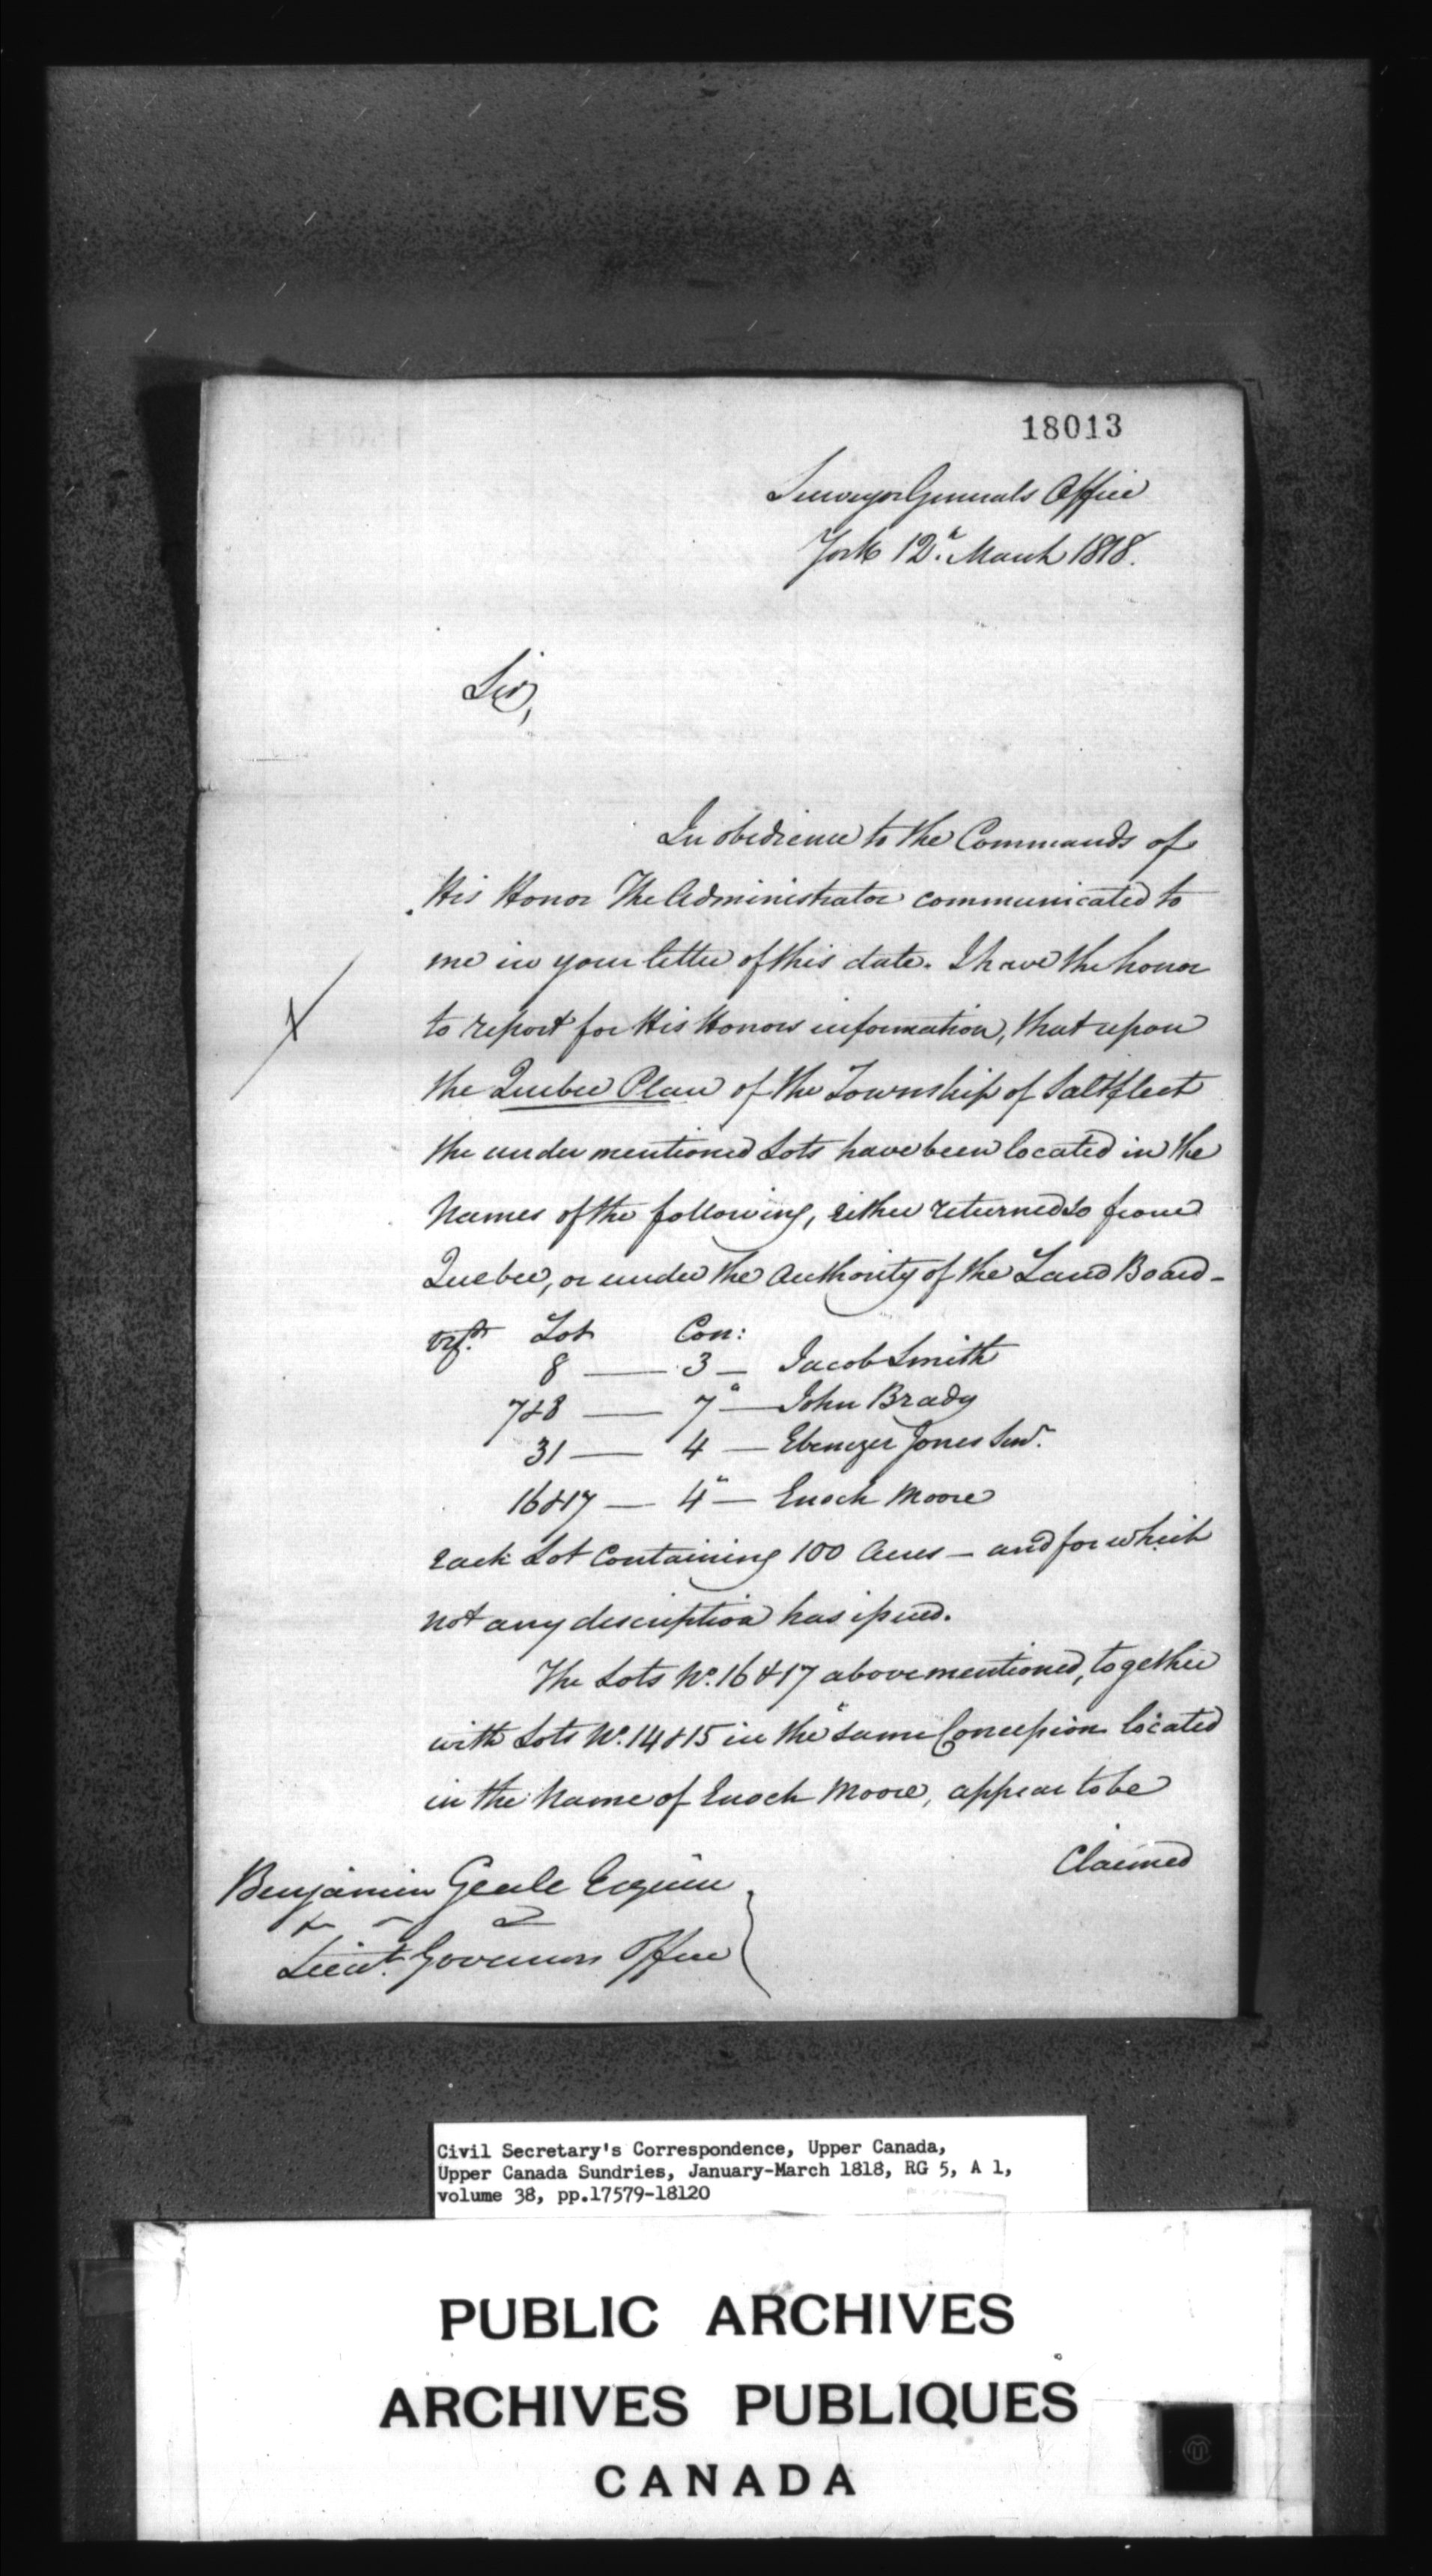 18013
Surveyor Generals Office
York 12th March 1818.
Sir,
In obedience to the Commands of
His Honor The Administrator communicated to
me in your letter of this date. I have the honor
to report for His Honors information, that upon
the Quebec Plan of the Township of Saltfleet
the under mentioned Lots have been located in the
Names of the following, either returned so from
Quebec, or under the Authority of the Land Board -
Lot Con:
8 — 3 — Jacob Smith
7 & 8 — 7 — John Brady
31 — 4 — Ebenezer Jones Senr.
16 & 17 — 4 — Enoch Moore
each Lot Containing 100 Acres — and for which
not any description has issued.
The Lots No. 16 & 17 above mentioned, together
with Lots No. 14 & 15 in the same Concession located
in the Name of Enoch Moore, appear to be
Claimed
Benjamin Geale Esquire
Lieut. Governors Office
Civil Secretary's Correspondence, Upper Canada,
Upper Canada Sundries, January-March 1818, RG 5, A 1,
volume 38, pp.17579-18120
PUBLIC ARCHIVES
ARCHIVES PUBLIQUES
CANADA